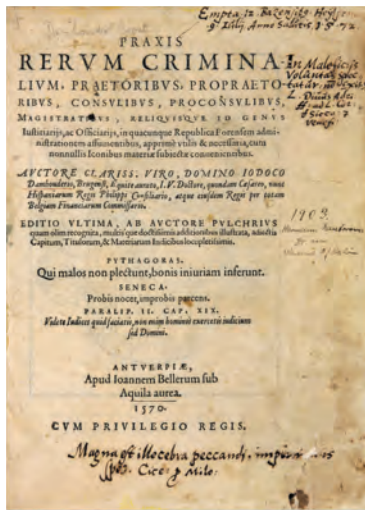 Empta
PRAXIS
RERVM CRIMINA-
LIVM, PRAETORIBVS, PROPRAETO
RIBVS, CONSVLIBVS, PROCONSVLIBVS,
MAGISTRATIBVS, RELIQVISQVE ID GENVS
Iustitiarijs, ac Officiarijs, in quacunque Republica Forensem admi-
nistrationem assumentibus, apprimè vtilis & necessaria, cum
nonnullis Iconibus materiæ subiectæ conuenientibus.
AVCTORE CLARISS. VIRO, DOMINO IODOCO
Damhouderio, Brugensi, Equite aurato, I. V. Doctore, quondam Cæsareo, nunc
Hispaniarum Regis Philippi Consiliario, atque eiusdem Regis per totam
Belgiam Financiarum Commissario.
EDITIO VLTIMA, AB AVCTORE PVLCHRIVS
quam olim recognita, multis que doctissimis additionibus illustrata, adiectis
Capitum, Titulorum, & Materiarum Indicibus locupletissimis.
PYTHAGORAS.
Qui malos non plectunt, bonis iniuriam inferunt.
SENECA.
Probis nocet, improbis parcens.
PARALIP. II. CAP. XIX.
Videte Iudices quid faciatis, non enim hominis exercetis iudicium
sed Domini.
ANTVERPIÆ,
Apud Ioannem Bellerum sub
Aquila aurea.
1570.
CVM PRIVILEGIO REGIS.
In Maleficijs
Voluntas spec
tatur
1903.
Magna est illecebra peccandi, impunitatis
spes. Cice: p Milo: